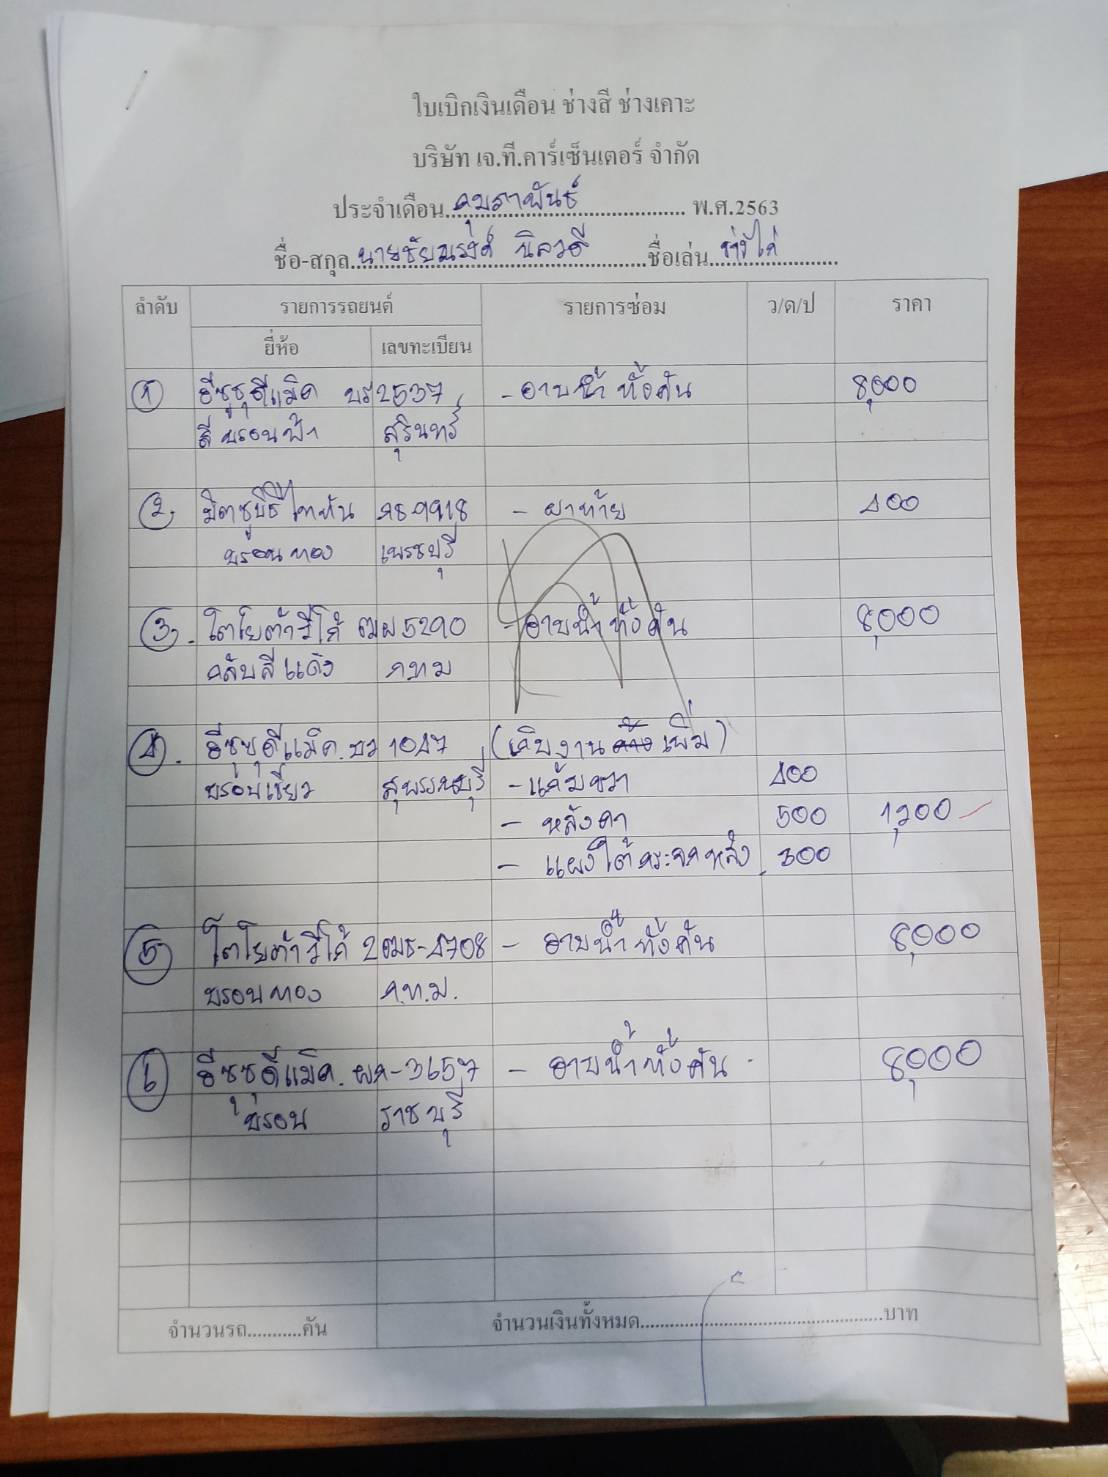 ใบเบิกเงินเดือน ช่างสี ช่างเคาะ
บริษัท เจ.ที.คาร์เซ็นเตอร์ จำกัด
ประจำเดือน กุมภาพันธ์ พ.ศ.2563
ชื่อ-สกุล นายชัยณรงค์ นิลวดี ชื่อเล่น ช่างไก่
ลำดับ รายการรถยนต์ รายการซ่อม ว/ด/ป ราคา
ยี่ห้อ เลขทะเบียน
1 อีซูซุดีแม็ค บร 2537 - อาบน้ำ ทั้งคัน 8,000
สีบรอนฟ้า สุรินทร์
2 มิตซูบิชิไททัน กธ-9918 - ฝาท้าย 400
บรอนทอง เพชรบุรี
3. โตโยต้าวีโก้ ฒผ 5290 - อาบน้ำ ทั้งคัน 8,000
กลับสีแดง กทม
4. อีซูซุดีแม็ค. บว 1047 (เก็บงาน เพิ่ม)
บรอนเขียว สุพรรณบุรี - แก้มขวา 400
- หลังคา 500 1,200
- แผงใต้กระจกหลัง 300
5 โตโยต้าวีโก้ 2ฒธ-4708 - อาบน้ำ ทั้งคัน 8,000
บรอนทอง ก.ท.ม.
6 อีซูซุดีแม็ค. ผก-3657 - อาบน้ำทั้งคัน 8,000
บรอน ราชบุรี
จำนวนรถ...........คัน จำนวนเงินทั้งหมด..................................................บาท